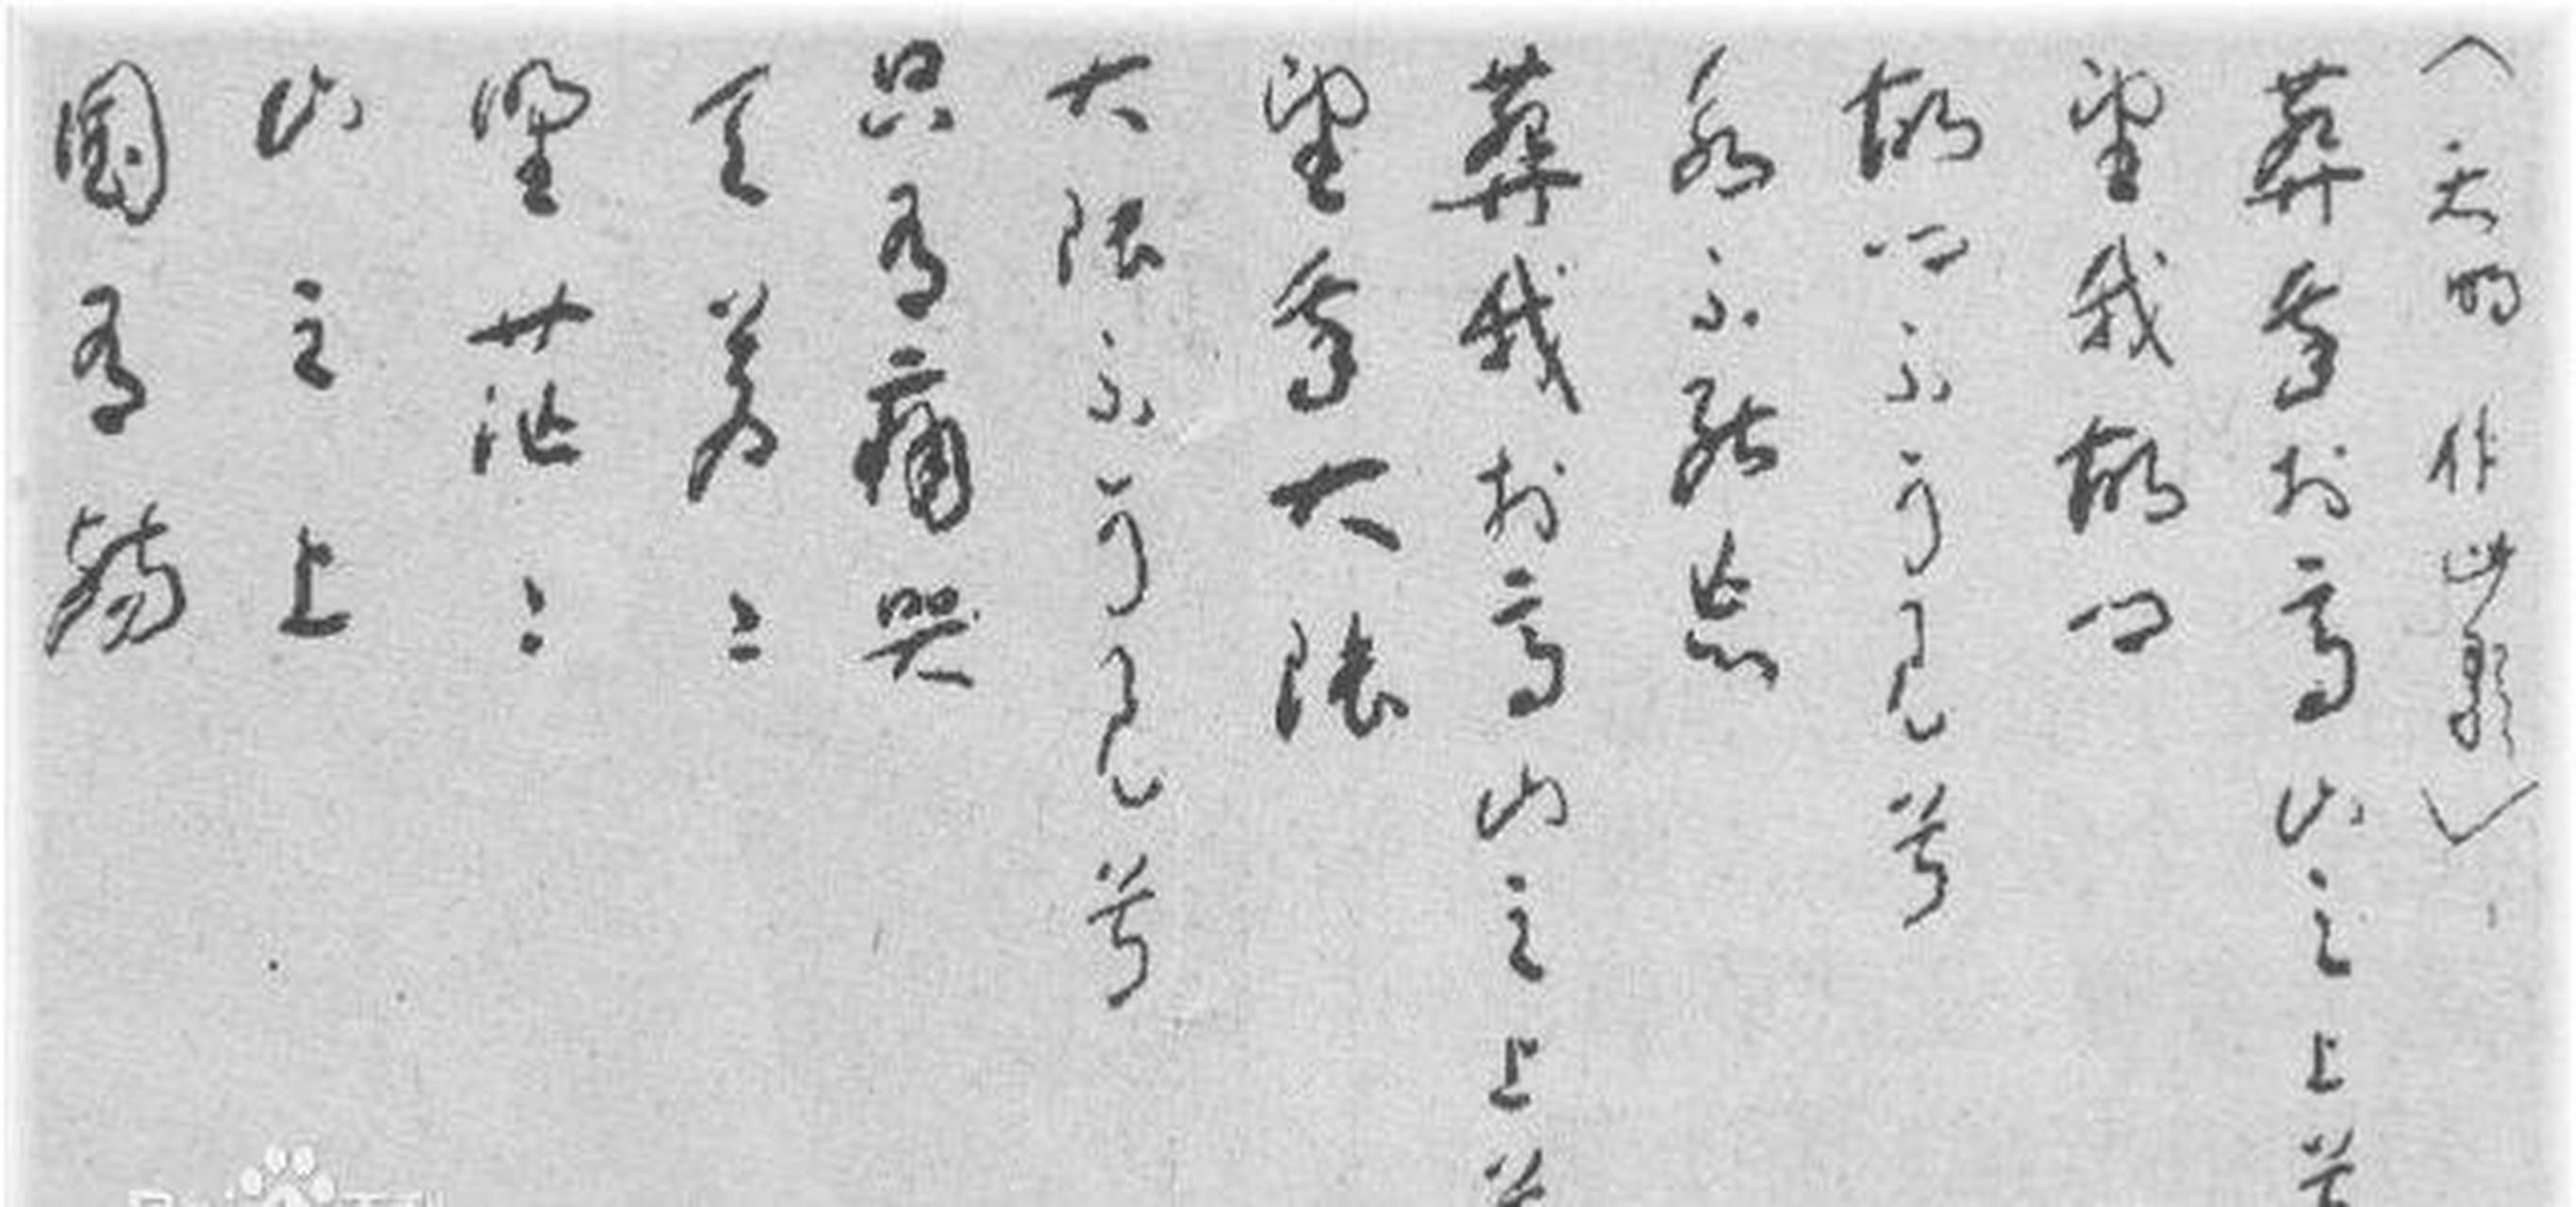 ︿天明作此歌﹀
葬我於高山之上兮
望我故鄉
故鄉不可見兮
永不能忘
葬我於高山之上兮
望我大陸
大陸不可見兮
只有痛哭
天蒼〻
野茫〻
山之上
國有殤